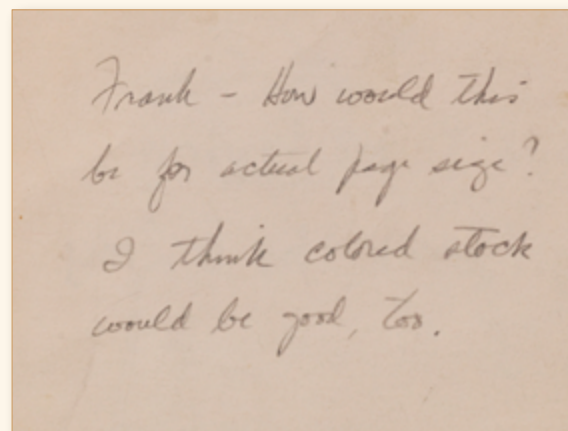 Frank - How would this
be for actual page size?
I think colored stock
would be good, too.